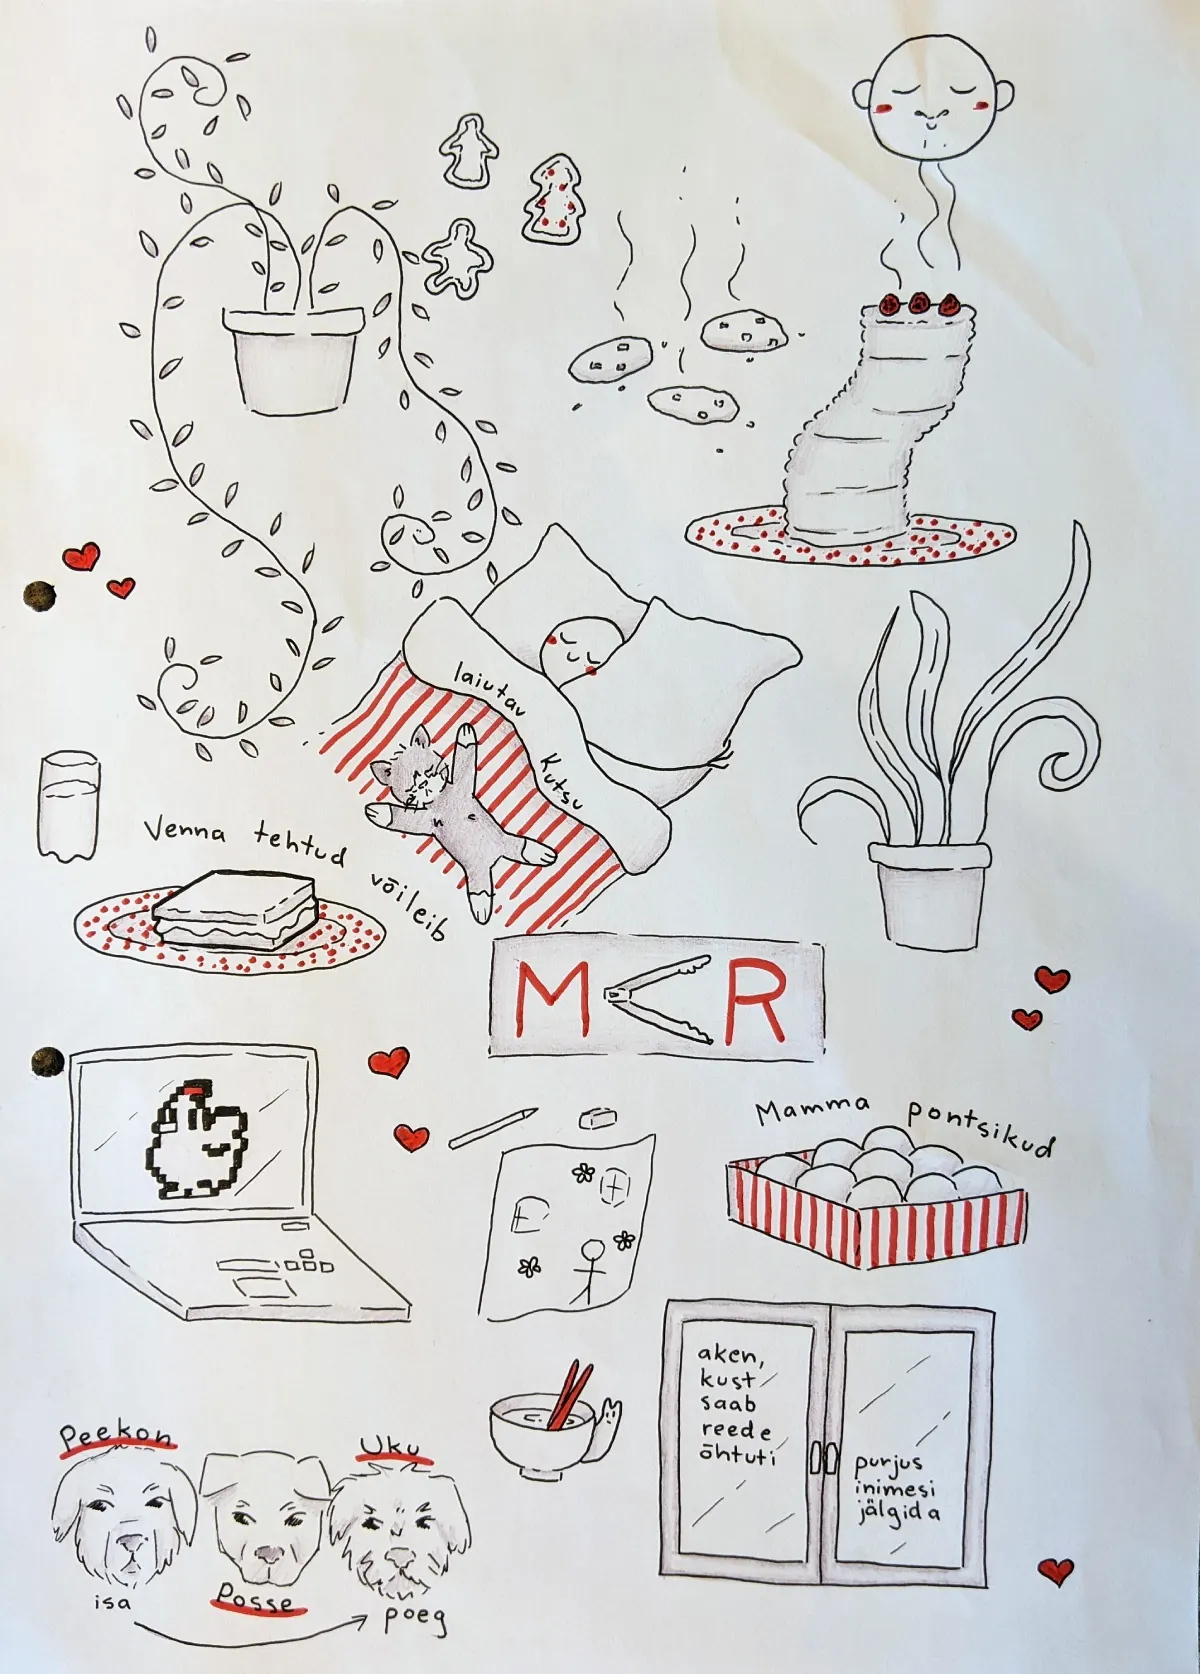 laiutav
Kutsu
Venna tehtud
võileib
M R
Mamma pontsikud
aken,
kust
saab
reede
õhtuti
purjus
inimesi
jälgida
Peekon
Uku
isa
Posse
poeg